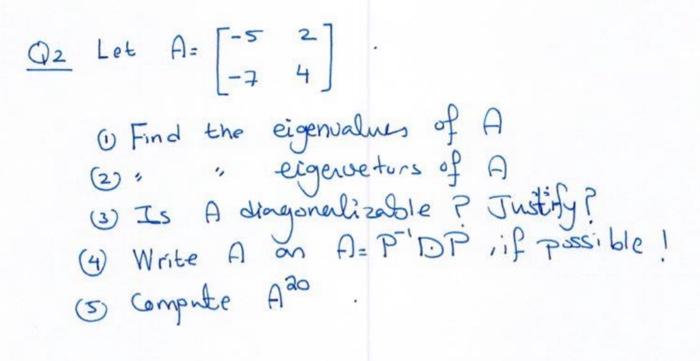 Q2 Let A= [-5 2
-7 4] .
① Find the eigenvalues of A
② " " eigenvetors of A
③ Is A diagonalizable ? Justify?
④ Write A as A= P⁻¹DP , if possible !
⑤ Compute A²⁰ .